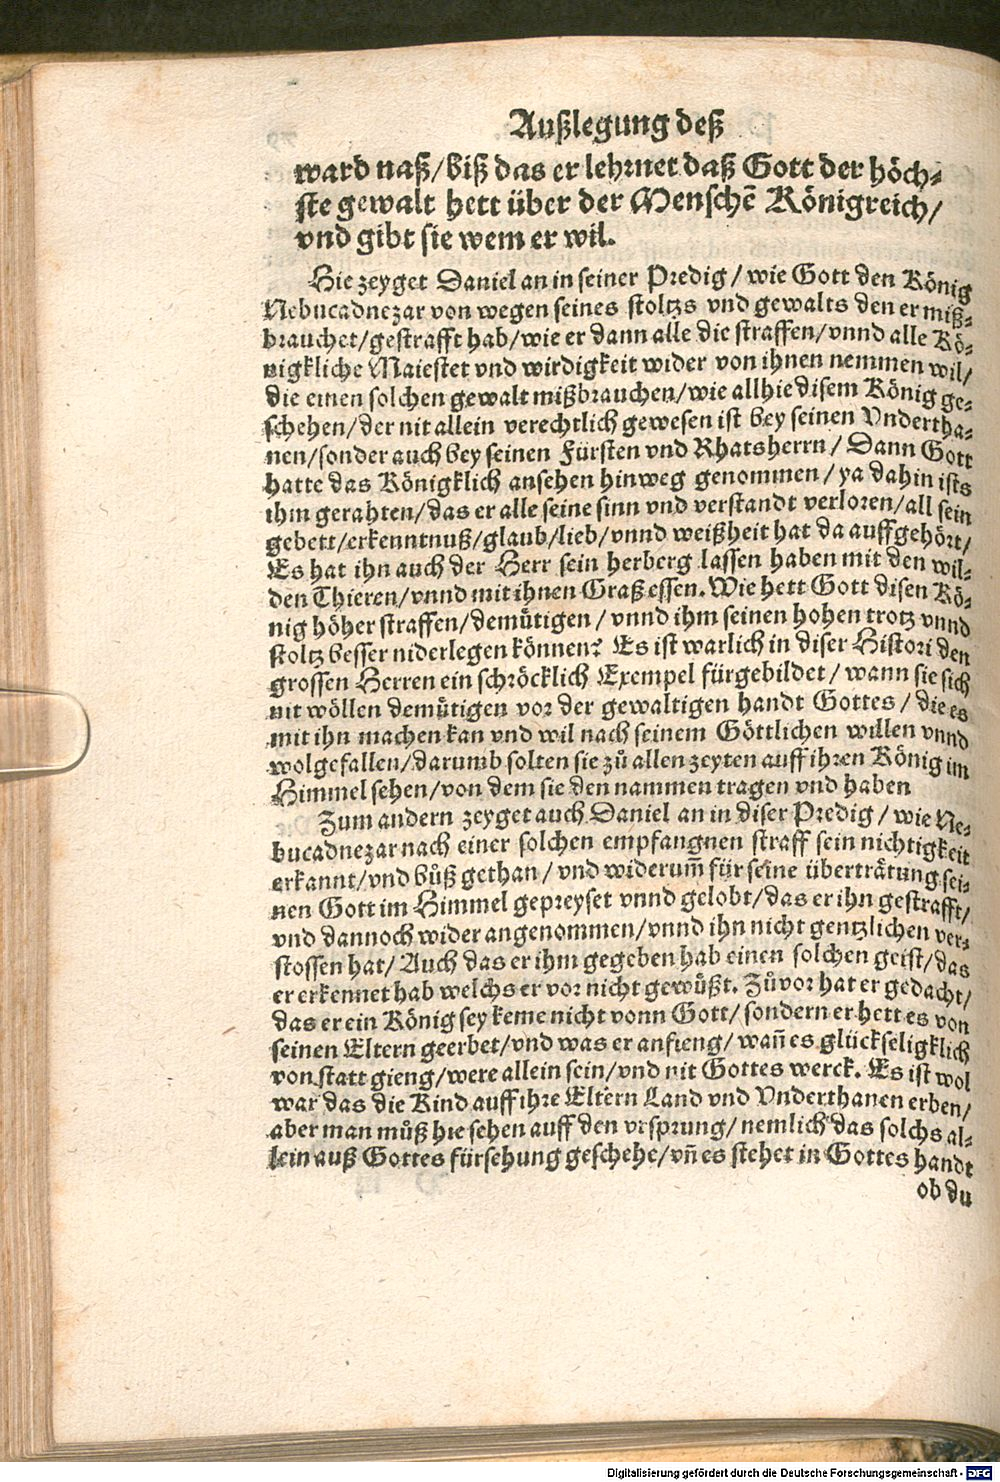 Außlegung deß
ward naß/biß das er lehrnet daß Gott der höch-
ste gewalt hett über der Menschẽ Königreich/
vnd gibt sie wem er wil.
Hie zeyget Daniel an in seiner Predig/wie Gott den König
Nebucadnezar von wegen seines stoltzs vnd gewalts den er miß-
brauchet/gestrafft hab/wie er dann alle die straffen/vnnd alle Kö-
nigkliche Maiestet vnd wirdigkeit wider von ihnen nemmen wil/
die einen solchen gewalt mißbrauchen/wie allhie disem König ge-
schehen/der nit allein verechtlich gewesen ist bey seinen Vndertha-
nen/sonder auch bey seinen Fürsten vnd Rhatsherrn/Dann Gott
hatte das Königklich ansehen hinweg genommen/ya dahin ists
ihm gerahten/das er alle seine sinn vnd verstandt verloren/all sein
gebett/erkenntnuß/glaub/lieb/vnnd weißheit hat da auffgehört/
Es hat ihn auch der Herr sein herberg lassen haben mit den wil-
den Thieren/vnnd mit ihnen Graß essen. Wie hett Gott disen Kö-
nig höher straffen/demütigen/vnnd ihm seinen hohen trotz vnnd
stoltz besser niderlegen können? Es ist warlich in diser Histori den
grossen Herren ein schröcklich Exempel fürgebildet/wann sie sich
nit wöllen demütigen vor der gewaltigen handt Gottes/die es
mit ihn machen kan vnd wil nach seinem Göttlichen willen vnnd
wolgefallen/darumb solten sie zů allen zeyten auff ihren König im
Himmel sehen/von dem sie den nammen tragen vnd haben
Zum andern zeyget auch Daniel an in diser Predig/wie Ne-
bucadnezar nach einer solchen empfangnen straff sein nichtigkeit
erkannt/vnd bůß gethan/vnd widerum̃ für seine überträtung sei-
nen Gott im Himmel gepreyset vnnd gelobt/das er ihn gestrafft/
vnd dannoch wider angenommen/vnnd ihn nicht gentzlichen ver-
stossen hat/Auch das er ihm gegeben hab einen solchen geist/das
er erkennet hab welchs er vor nicht gewüßt. Zůvor hat er gedacht/
das er ein König sey keme nicht vonn Gott/sondern er hett es von
seinen Eltern geerbet/vnd was er anfieng/wañ es glückseligklich
von statt gieng/were allein sein/vnd nit Gottes werck. Es ist wol
war das die Kind auff ihre Eltern Land vnd Vnderthanen erben/
aber man můß hie sehen auff den vrsprung/nemlich das solchs al-
lein auß Gottes fürsehung geschehe/vñ es stehet in Gottes handt
ob du
Digitalisierung gefördert durch die Deutsche Forschungsgemeinschaft - DFG